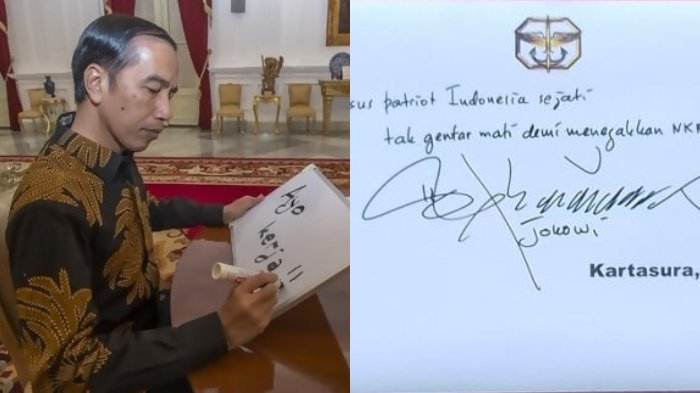 Ayo
kerja !!
sus patriot Indonesia sejati
tak gentar mati demi menegakkan NKR
Jokowi
Kartasura,